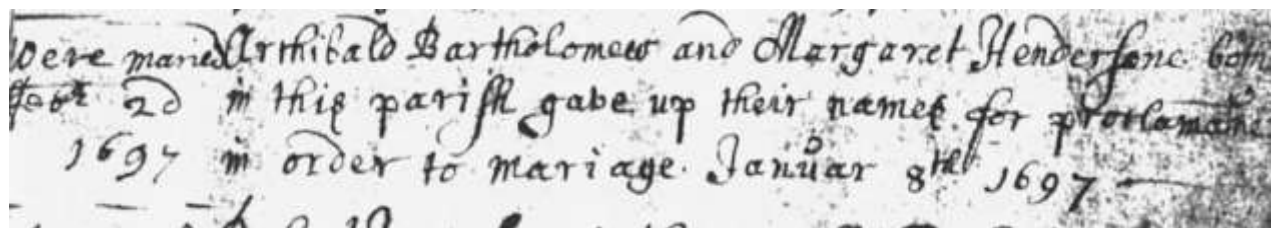 Were maried Archibald Bartholomew and Margaret Hendersone both
Febr 2d in this parish gave up their names for proclamatione
1697 in order to mariage. Januar 8th 1697